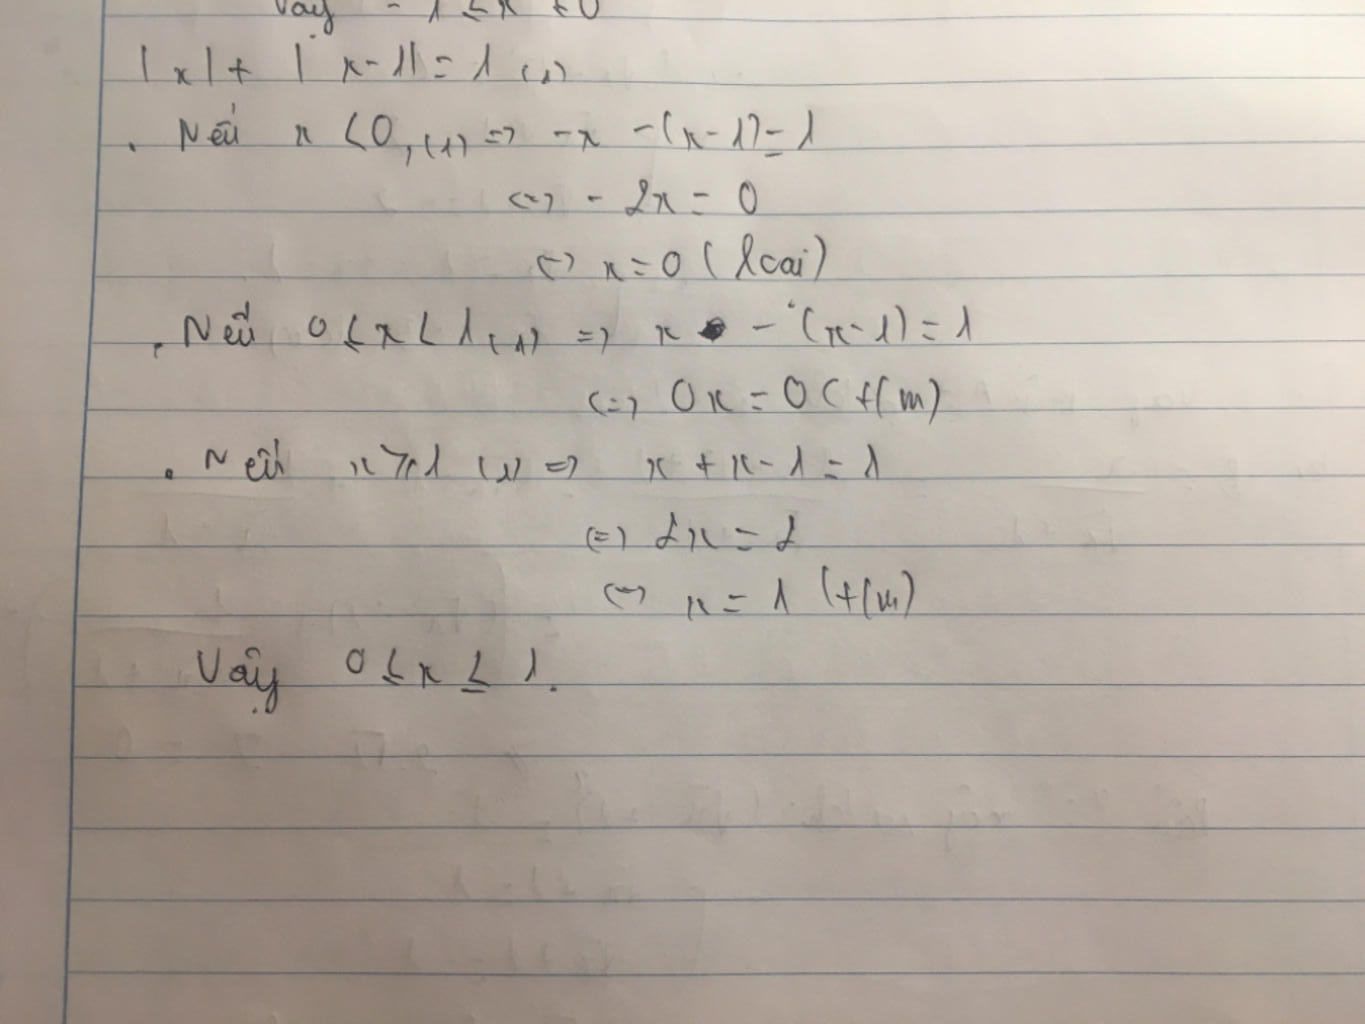 Vậy -1 ≤ x ≤ 0
|x| + |x-1| = 1 (1)
. Nếu x < 0, (1) => -x -(x-1) = 1
<=> - 2x = 0
<=> x = 0 (loại)
. Nếu 0 ≤ x < 1 (1) => x - (x-1) = 1
<=> 0x = 0 (t/m)
. Nếu x ≥ 1 (1) => x + x - 1 = 1
<=> 2x = 2
<=> x = 1 (t/m)
Vậy 0 ≤ x ≤ 1.